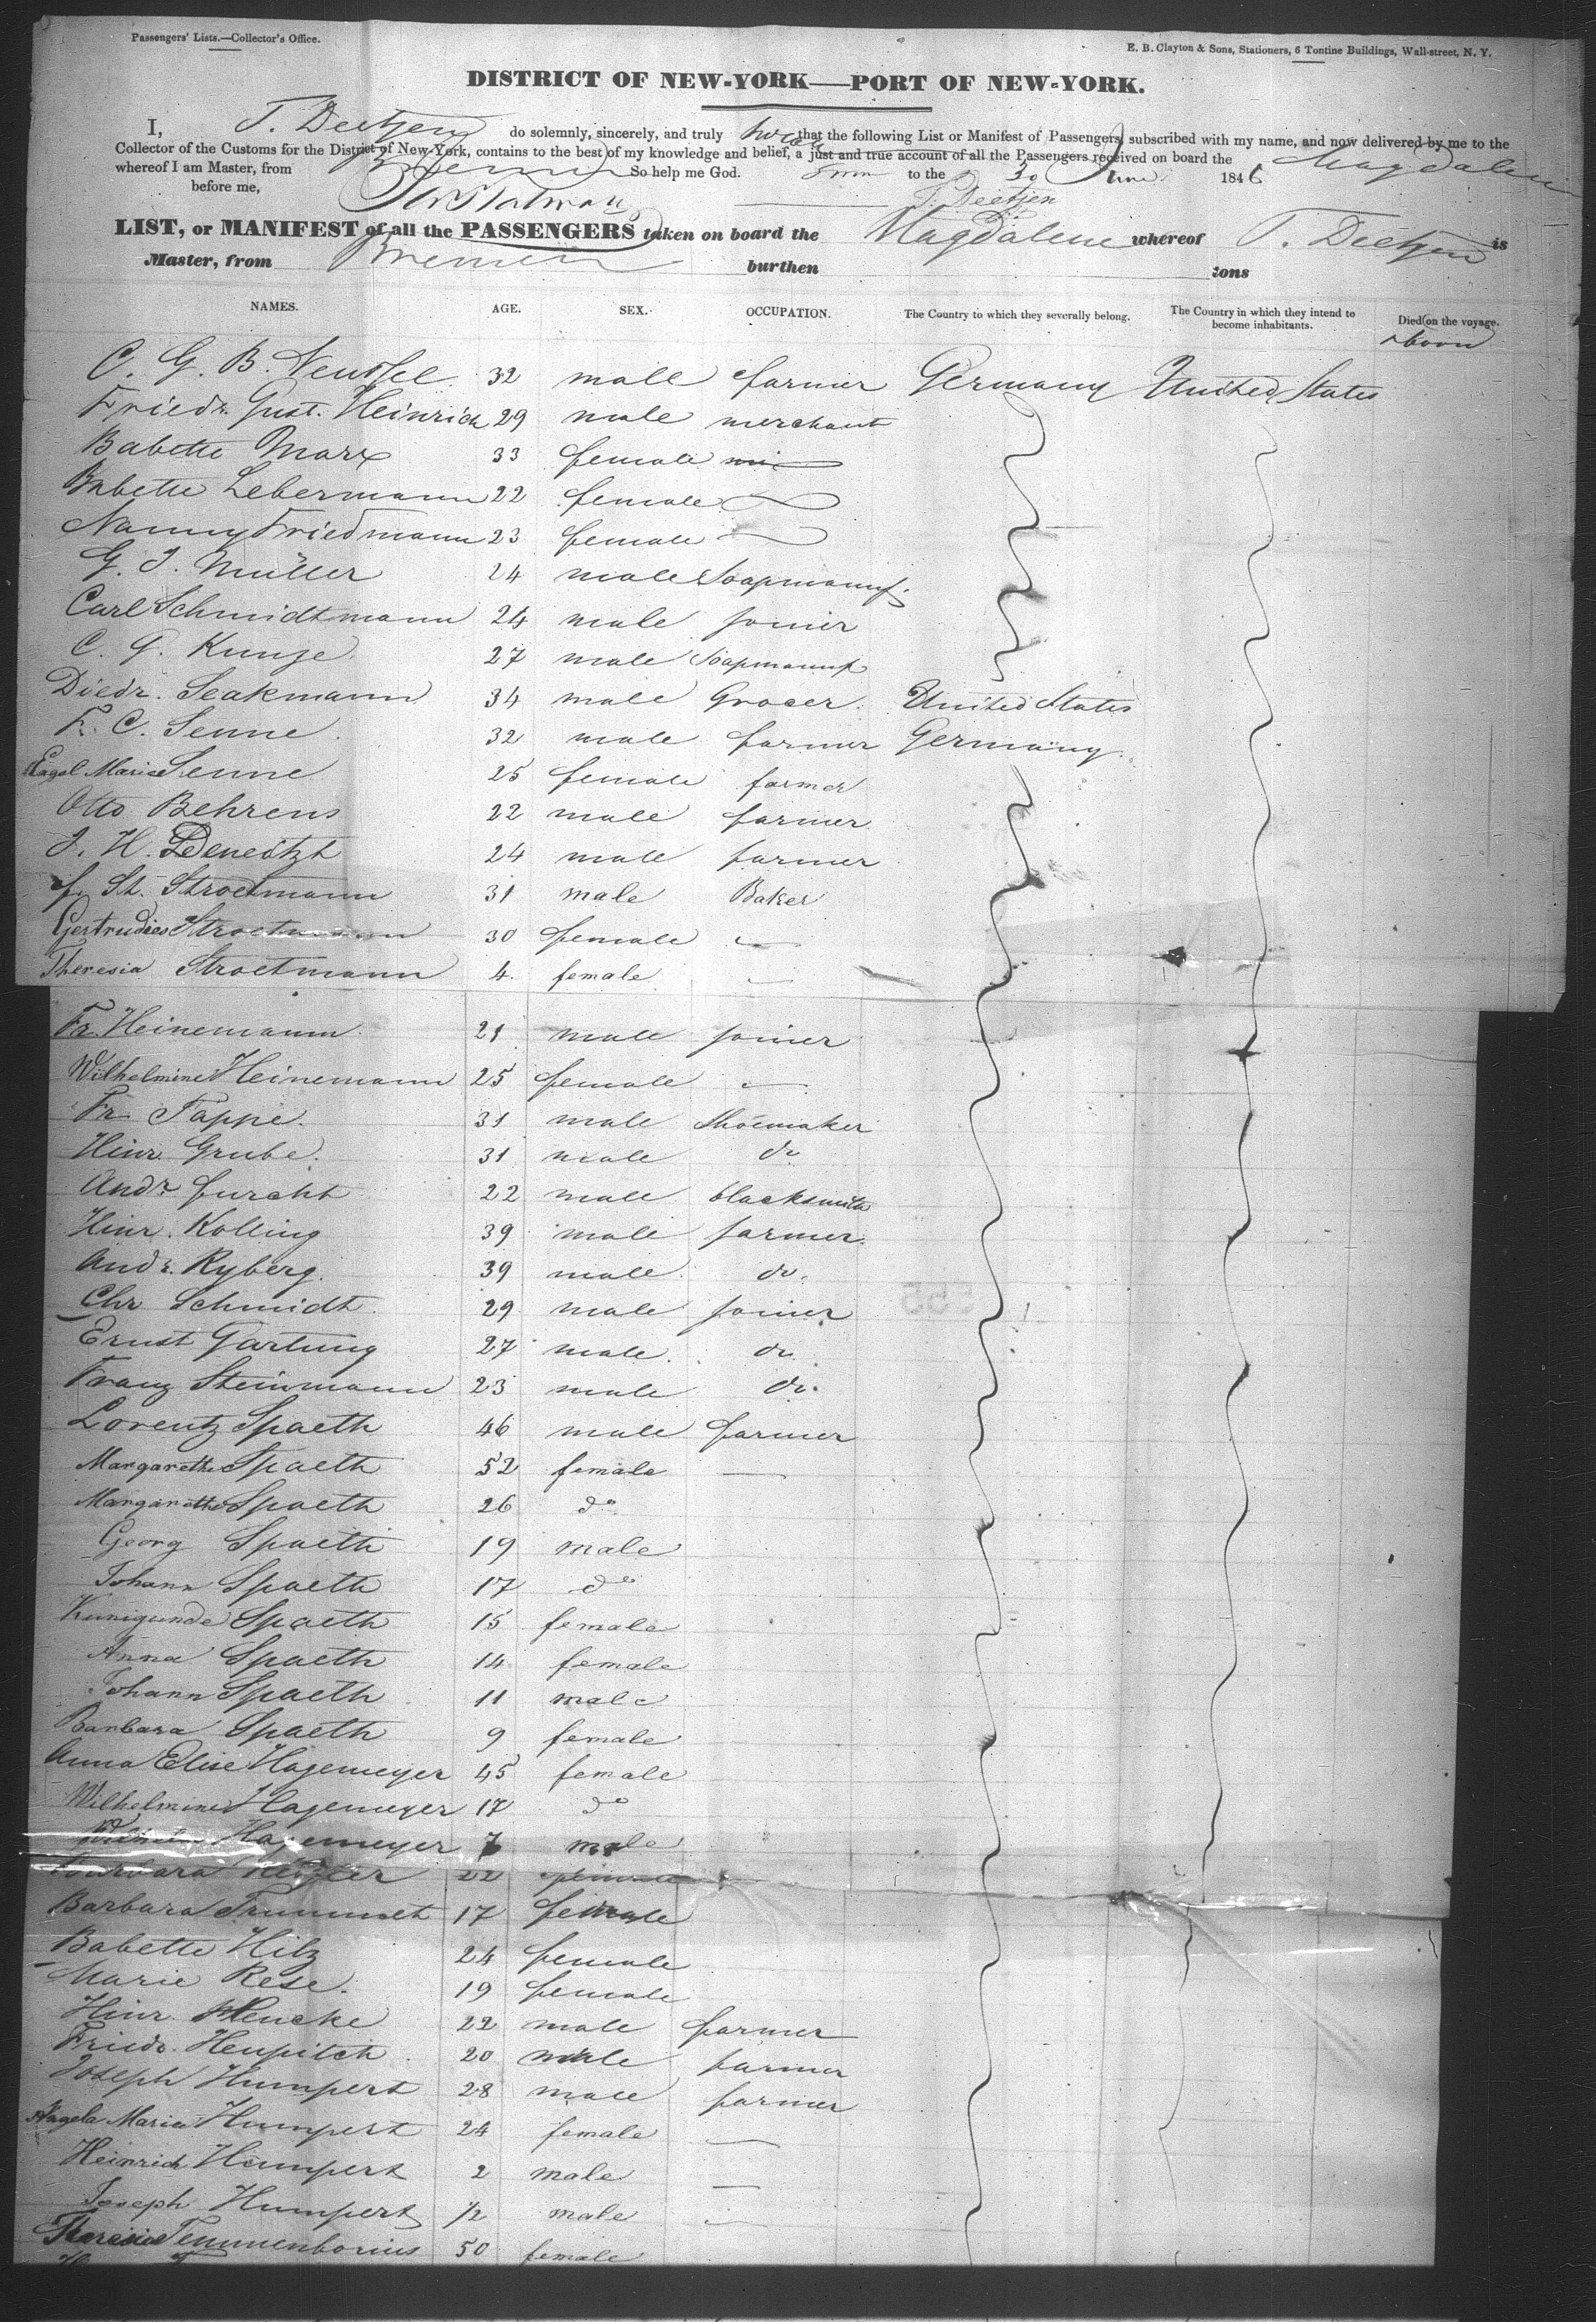 Passengers' Lists.—Collector's Office.
E. B. Clayton & Sons, Stationers, 6 Tontine Buildings, Wall-street, N. Y.
DISTRICT OF NEW-YORK—PORT OF NEW-YORK.
I, T. Deetjen do solemnly, sincerely, and truly swear that the following List or Manifest of Passengers, subscribed with my name, and now delivered by me to the
Collector of the Customs for the District of New-York, contains to the best of my knowledge and belief, a just and true account of all the Passengers received on board the Magdalene
whereof I am Master, from Bremen So help me God.
to the 30 June 1846
before me, T. Deetjen
LIST, or MANIFEST of all the PASSENGERS taken on board the Magdalene whereof T. Deetjen is
Master, from Bremen burthen tons
NAMES. AGE. SEX. OCCUPATION. The Country to which they severally belong. The Country in which they intend to become inhabitants. Died on the voyage.
born
C. G. B. 32 male farmer Germany United States
Friedr. Gust. Heinrich 29 male merchant
Babette Marx 33 female
Babette Lebermann 22 female
Nanny Friedmann 23 female
G. J. Müller 24 male Soapmanuf.
Carl Schmidtmann 24 male joiner
C. G. Kunze 27 male Soapmanuf
Diedr. Seakmann 34 male Grocer. United States
F. C. Senne. 32 male farmer Germany.
Engel Marie Senne 25 female farmer
Otto Behrens 22 male farmer
J. H. 24 male farmer
St. Stroetmann 31 male Baker
Gertrudies Stroetmann 30 female —
Theresia Stroetmann 4. female —
Fr. Heinemann 21 male joiner
Wilhelmine Heinemann 25 female —
Fr. Tappe. 31 male Shoemaker
Heinr. Grube. 31 male do
Andr. Furcht 22 male blacksmith
Heinr. Kolling 39 male farmer.
Andr. Ryberg. 39 male do.
Chr Schmidt. 29 male joiner
Ernst Gartung 27 male. do
Franz Steinmann 23 male do.
Lorentz Spaeth 46 male farmer
Margarethe Spaeth 52 female —
Margarethe Spaeth 26 do
Georg Spaeth 19 male
Johann Spaeth 17 do
Kunigunde Spaeth 15 female
Anna Spaeth 14 female
Johann Spaeth 11 male
Barbara Spaeth 9 female
Anna Elise Hagemeyer 45 female
Wilhelmine Hagemeyer 17 do
Hagemeyer 7 male
Barbara 22 female
Barbara Trummelt 17 female
Babette Hilz 24 female
Marie Rese. 19 female
Heinr. Hencke 22 male farmer
Friedr. Heupitch 20 male farmer
Joseph Humpert 28 male farmer
Angela Maria Humpert 24 female —
Heinrich Humpert 2 male —
Joseph Humpert 1/2 male —
Theresia Temmenborius 50 female